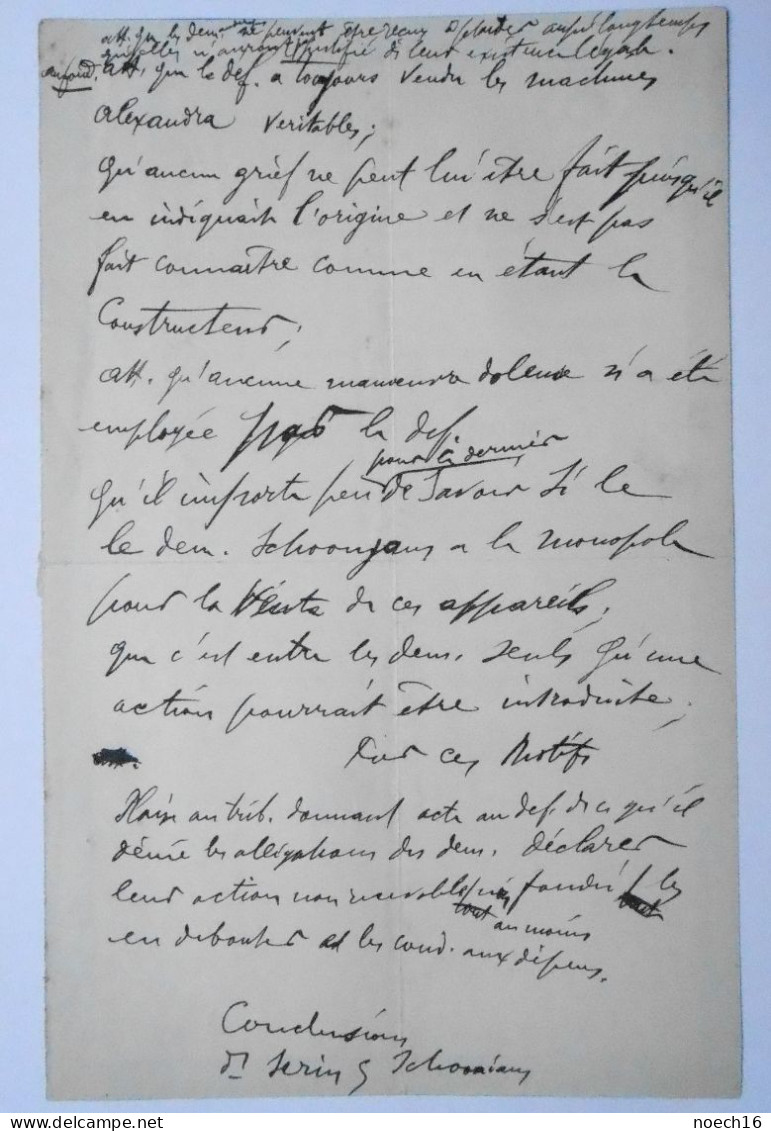 att. que les dem. ne peuvent être reçus à plaider aussi longtemps
qu'elles n'auront justifié de leur existence légale.
au fond. att. que le def. a toujours vendu les machines
Alexandra veritables;
qu'aucun grief ne peut lui être fait puisqu'il
en indiquait l'origine et ne s'est pas
fait connaître comme en étant le
Constructeur;
att. qu'aucune manoeuvre doleuse n'a été
employée par le def.
pour ce dernier
qu'il importe peu de savoir si le
le dem. Schoonjans a le monopole
pour la Vente de ces appareils;
que c'est entre les dem. seuls qu'une
action pourrait être introduite;
Par ces Motifs
Plaise au trib. donnant acte au def. de ce qu'il
dénie les allégations des dem. déclarer
leur action non recevable, fondée, les
tout au moins
en debouter et les cond. aux dépens.
Conclusions
Schoonjans
noech16